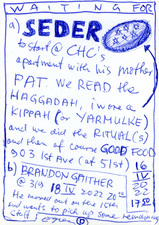 WAITING FOR
a) SEDER
to start @ CHC's
apartment with his mother
PAT. WE READ the
HAGGADAH, i wore a
KIPPAH (or YARMULKE)
and we did the RITUAL(S)
and then of course GOOD FOOD
903 1st Ave (at 51st)
16
IV
20
22
1750
b) BRANDON GAITHER
@ 319 18 IV 2022 20
He moved out on the 15th
and wants to pick up some remaining
stuff